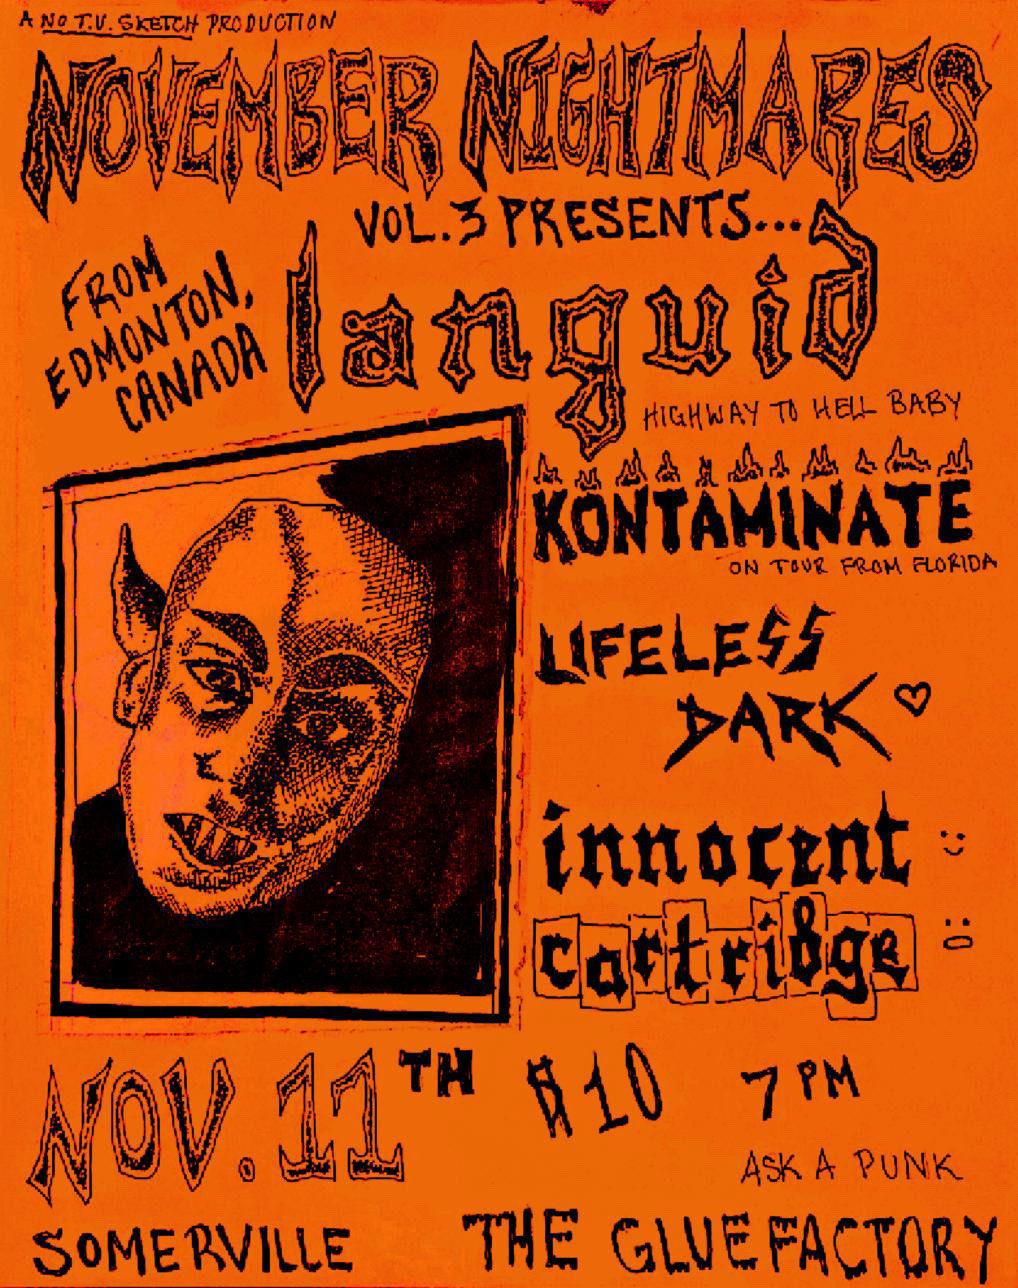 A NO T.V. SKETCH PRODUCTION
NOVEMBER NIGHTMARES
VOL.3 PRESENTS...
FROM
EDMONTON,
CANADA
languid
HIGHWAY TO HELL BABY
KONTAMINATE
ON TOUR FROM FLORIDA
LIFELESS
DARK
innocent
cartridge
NOV. 11TH
$10
7 PM
ASK A PUNK
SOMERVILLE
THE GLUE FACTORY